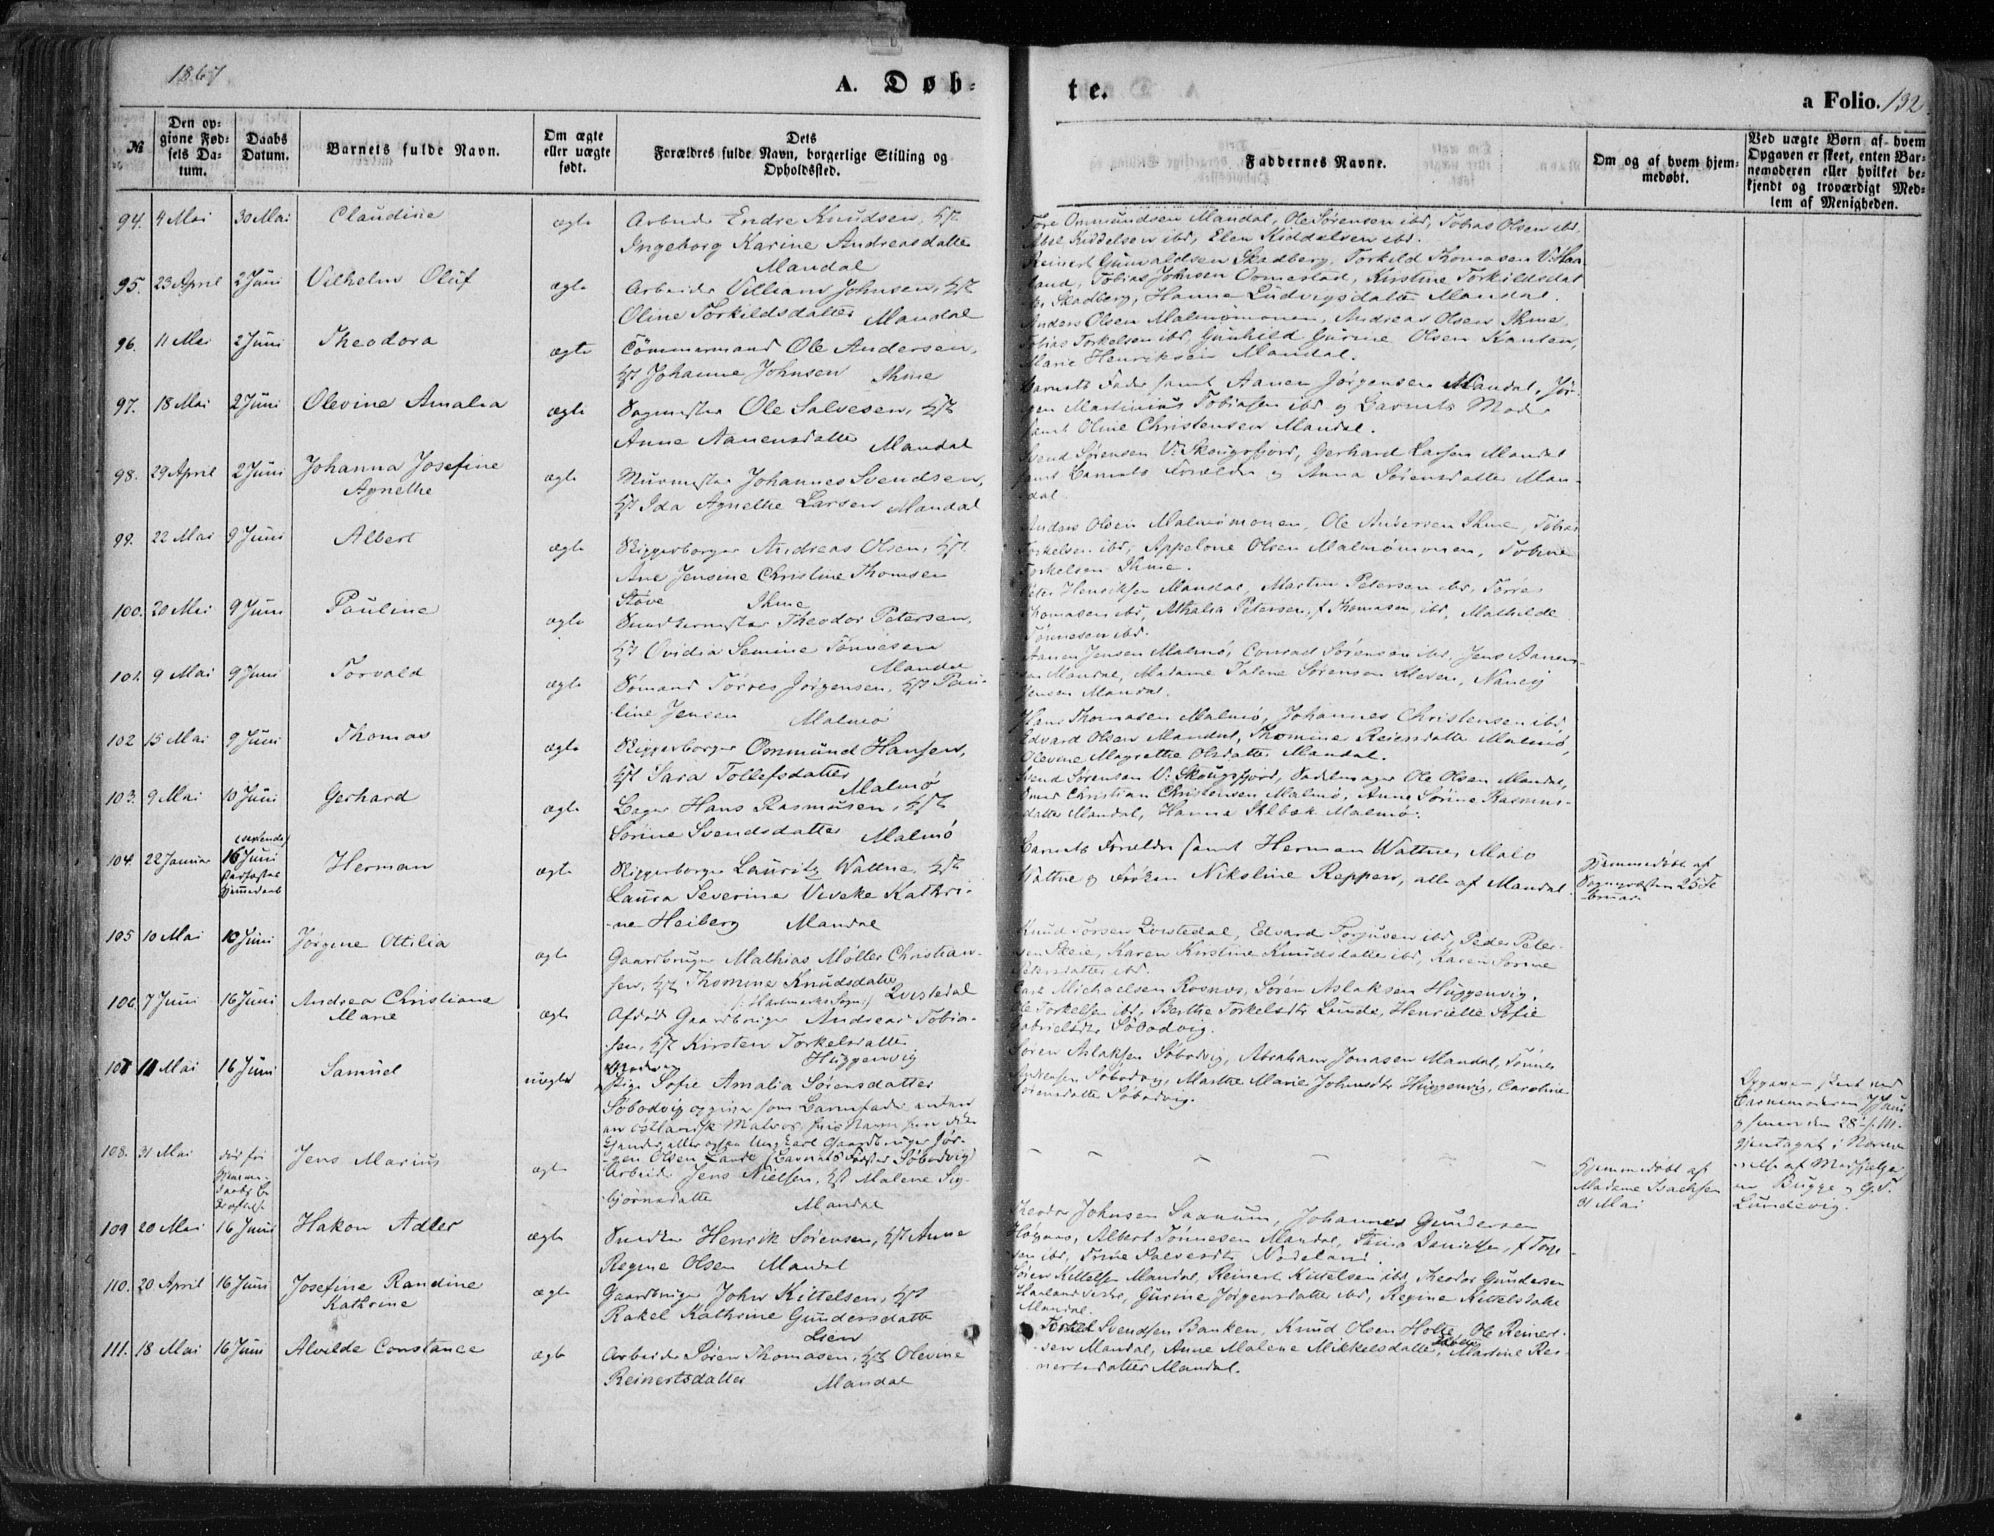 1867
A. Døb-
te.
a Folio. 132
№
Den op-
givne Fød-
sels Da-
tum.
Daabs
Datum.
Barnets fulde Navn.
Om ægte
eller uægte
født.
Dets
Forældres fulde Navn, borgerlige Stilling og
Opholdssted.
Faddernes Navne.
Om og af hvem hjem-
medøbt.
Ved uægte Børn af hvem
Opgaven er skeet, enten Bar-
nemoderen eller hvilket be-
kjendt og troværdigt Med-
lem af Menigheden.
94. 4 Mai 30 Mai Claudine ægte Arbeider Endre Knudsen,
Ingeborg Karine Andreasdatter
Mandal
Tore Ommundsen Mandal, Ole Sørensen ibd, Tobias Olsen ibd,
Abel Kiddelsen ibd, Elen Kiddelsen ibd.
95. 23 April 2 Juni Vilhelm Oluf ægte Arbeider Villiam Johnsen,
Oline Torkildsdatter Mandal
Reinert Gunvaldsen Skadberg, Torkild Thomasen
land, Tobias Johnsen Oomestad, Kirstine Torkildsdat
Skadberg, Hanne Ludvigsdatter Mandal.
96. 11 Mai 2 Juni Theodora ægte Tømmermand Ole Andersen,
Johanne Johnsen Ihme
Anders Olsen Malmømonen, Andreas Olsen Ihme,
Tobias Torkelsen ibd, Gunhild Gurine Olsen
Marie Henriksen Mandal.
97. 18 Mai 2 Juni Olevine Amalia ægte Sagmester Ole Salvesen,
Anne Aanensdatter Mandal
Barnets Fader samt Aanen Jørgensen Mandal, Jør-
gen Martinius Tobiasen ibd og Barnets Moder
samt Oline Christensen Mandal.
98. 29 April 2 Juni Johanna Josefine
Agnethe
ægte Murmester Johannes Svendsen,
Ida Agnethe Larsen Mandal
Svend Sørensen V. Skougsfjord, Gerhard Larsen Mandal
samt Barnets Forældre og Anna Sørensdatter Man-
dal.
99. 22 Mai 9 Juni Albert ægte Skipperborger Andreas Olsen,
Ane Jensine Christine Thomsen
Støve Ihme
Anders Olsen Malmømonen, Ole Andersen Ihme, Tobias
Torkelsen ibd, Appelone Olsen Malmømonen, Tobine
Torkelsen Ihme.
100. 20 Mai 9 Juni Pauline ægte Snedkermester Theodor Petersen,
Ovidia Semine Tønnesen
Mandal
Peter Henriksen Mandal, Martin Petersen ibd, Tørres
Thomasen ibd, Athalia Petersen, f. Thomasen, ibd, Mathilde
Tønnesen ibd.
101. 9 Mai 9 Juni Torvald ægte Sømand Tørres Jørgensen, Pau-
line Jensen Malmø
Aanen Jensen Malmø, Conrad Sørensen ibd, Jens Aanen-
sen Mandal, Madame Talene Sørensen Kleven, Nancy
Jensen Mandal.
102 15 Mai 9 Juni Thomas ægte Skipperborger Ommund Hansen,
Sara Tollefsdatter
Malmø
Hans Thomasen Malmø, Johannes Christensen ibd,
Edvard Olsen Mandal, Thomine Reiersdatter Malmø,
Olevine Magrethe Olsdatter Mandal.
103. 9 Mai 10 Juni Gerhard ægte Bager Hans Rasmusen,
Sørine Svendsdatter Malmø
Svend Sørensen V. Skougsfjord, Sadelmager Ole Olsen Mandal,
Smed Christian Christensen Malmø, Anne Sørine Rasmus-
datter Mandal, Hanna Malmø.
104. 22 Januar 16 Juni Herman ægte Skipperborger Lauritz Wattne,
Laura Severine Viveke Kathri-
ne Heiberg Mandal
Barnets Forældre samt Herman Wattne, Malo
Wattne og Frøken Nikoline Reppen, alle af Mandal.
Hjemmedøbt af
Sognepræsten 25 Fe
bruar.
105 10 Mai 10 Juni Jørgine Ottilia ægte Gaardbruger Mathias Møller Christian-
sen, Thomine Knudsdatter
(Halsmark Sogn) Livestedal
Knud Torsen Livestedal, Edvard Torjusen ibd, Peder Peter-
sen Skeie, Karen Kirstine Knudsdatter ibd, Karen Sørine
Petersdatter ibd.
106. 7 Juni 16 Juni Andrea Christiane
Marie
ægte Afdød Gaardbruger Andreas Tobia-
sen, Kirsten Torkelsdatter
Huggenvig
Michaelsen Rosnes, Søren Aslaksen Huggenvig,
Ole Torkelsen ibd, Berthe Torkelsdtr Lunde, Henriette Sofie
Gabrielsdtr Søbodvig.
107 11 Mai 16 Juni Samuel uægte Pige Sofie Amalia Sørensdatter
Søbodvig opgiver som Barnefader enten
en østlandsk Matros, hvis Navn hun ikke
kjender, eller ogsaa Ungkarl Gaardbruger Jør-
gen Olsen Lande (Barnets Fødested Søbodvig)
Søren Aslaksen Søbodvig, Abraham Jonasen Mandal, Tønnes
Andersen Søbodvig, Marthe Marie Johnsdtr Huggenvig, Caroline
Sørensdatter Søbodvig.
Opgaven skeet ved
Barnemoderen 7 Juni
og senere den 28 s. M.
gjentaget i Nærvæ-
relse af Medhjelper
ne Bugge og G. T.
Lundevig.
108. 31 Mai Jens Marius ægte Arbeider Jens Nielsen, Malene Sig-
bjørnsdatter Mandal
Hjemmedøbt af
Madame Isachsen
31 Mai
109 20 Mai 16 Juni Hakon Adler ægte Snedker Henrik Sørensen, Anne
Regine Olsen Mandal
Theodor Johnsen Saanum, Johannes Gundersen
Høgnes, Albert Tønnesen Mandal, Danielsen,
sen ibd, Trine Salvesdtr Nodeland.
110. 20 April 16 Juni Josefine Randine
Kathrine
ægte Gaardbruger John Kittelsen,
Rakel Kathrine Gundersdatter
Lien
Søren Kittelsen Mandal, Reinert Kittelsen ibd, Theodor Gundersen
Gurine Jørgensdatter ibd, Regine Kittelsdatter
Mandal.
111. 18 Mai 16 Juni Alvilde Constance ægte Arbeider Søren Thomasen, Olevine
Reinertsdatter Mandal
Svendsen Banken, Knud Olsen Holte, Ole Reinert-
sen Mandal, Anne Malene Mikkelsdatter, Martine Rei-
nertsdatter Mandal.